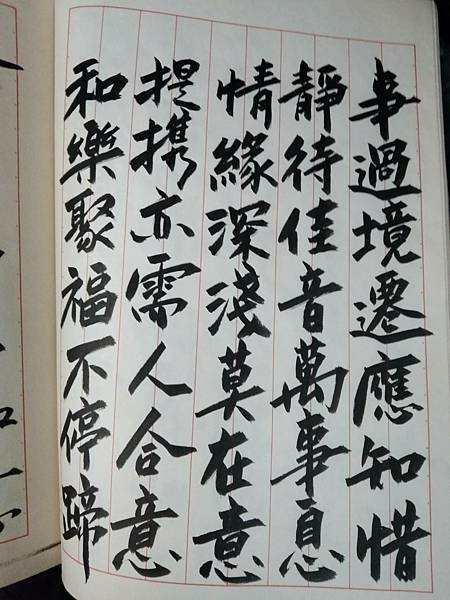 事過境遷應知惜
靜待佳音萬事息
情緣深淺莫在意
提携亦需人合意
和樂聚福不停蹄